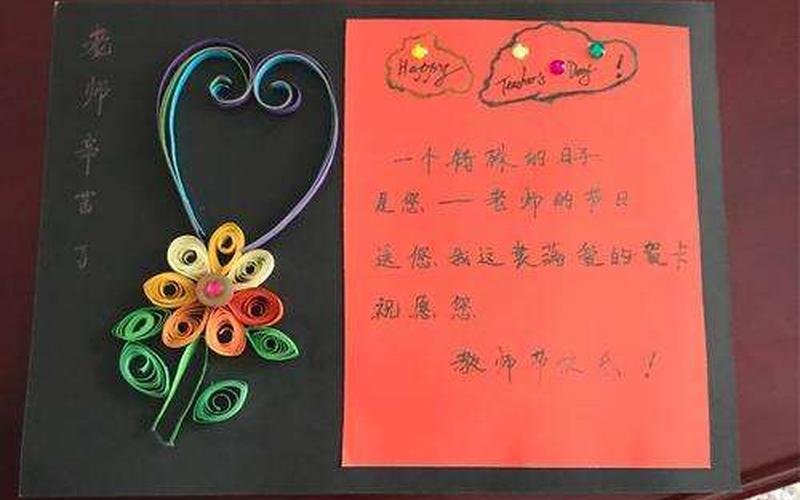 老师辛苦了
Happy Teacher's Day!
一个特殊的日子
是您——老师的节日
送您我这装满爱的贺卡
祝愿您
教师节快乐!